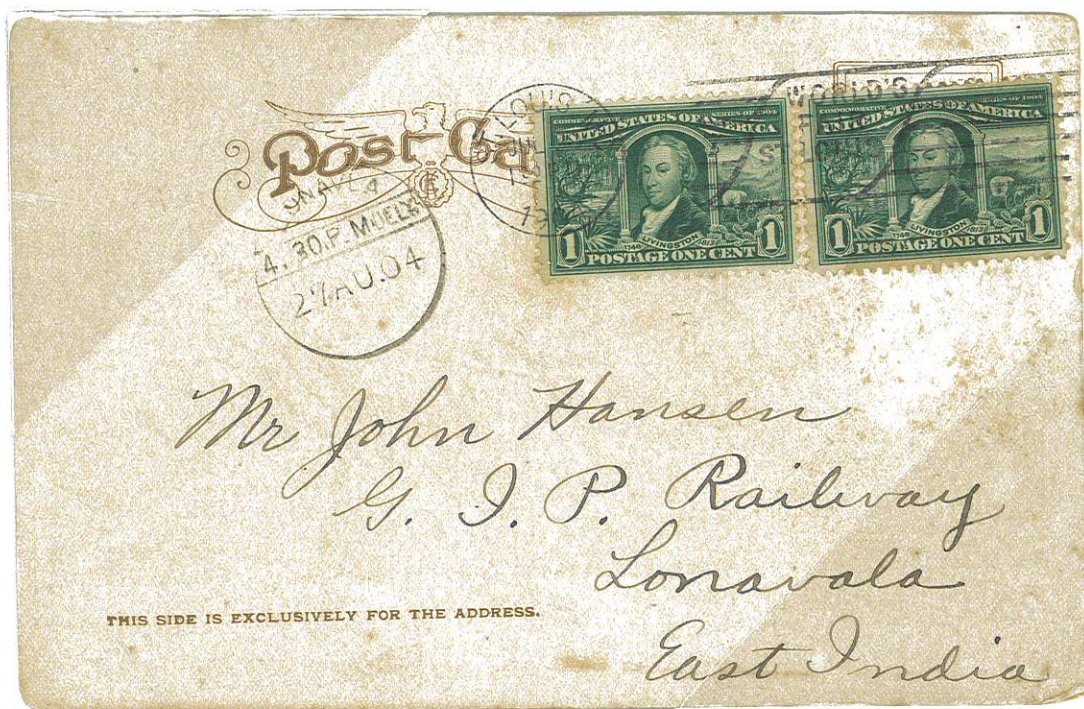 Post Ca
ST. LOUIS
WORLD'S
ST. LOUIS
COMMEMORATIVE SERIES OF 1904
UNITED STATES OF AMERICA
1746 LIVINGSTON 1813
1 POSTAGE ONE CENT 1
COMMEMORATIVE SERIES OF 1904
UNITED STATES OF AMERICA
1746 LIVINGSTON 1813
1 POSTAGE ONE CENT 1
4.30.P.M
27 AU.04
Mr John Hansen
G. I. P. Railway
Lonavala
East India
THIS SIDE IS EXCLUSIVELY FOR THE ADDRESS.